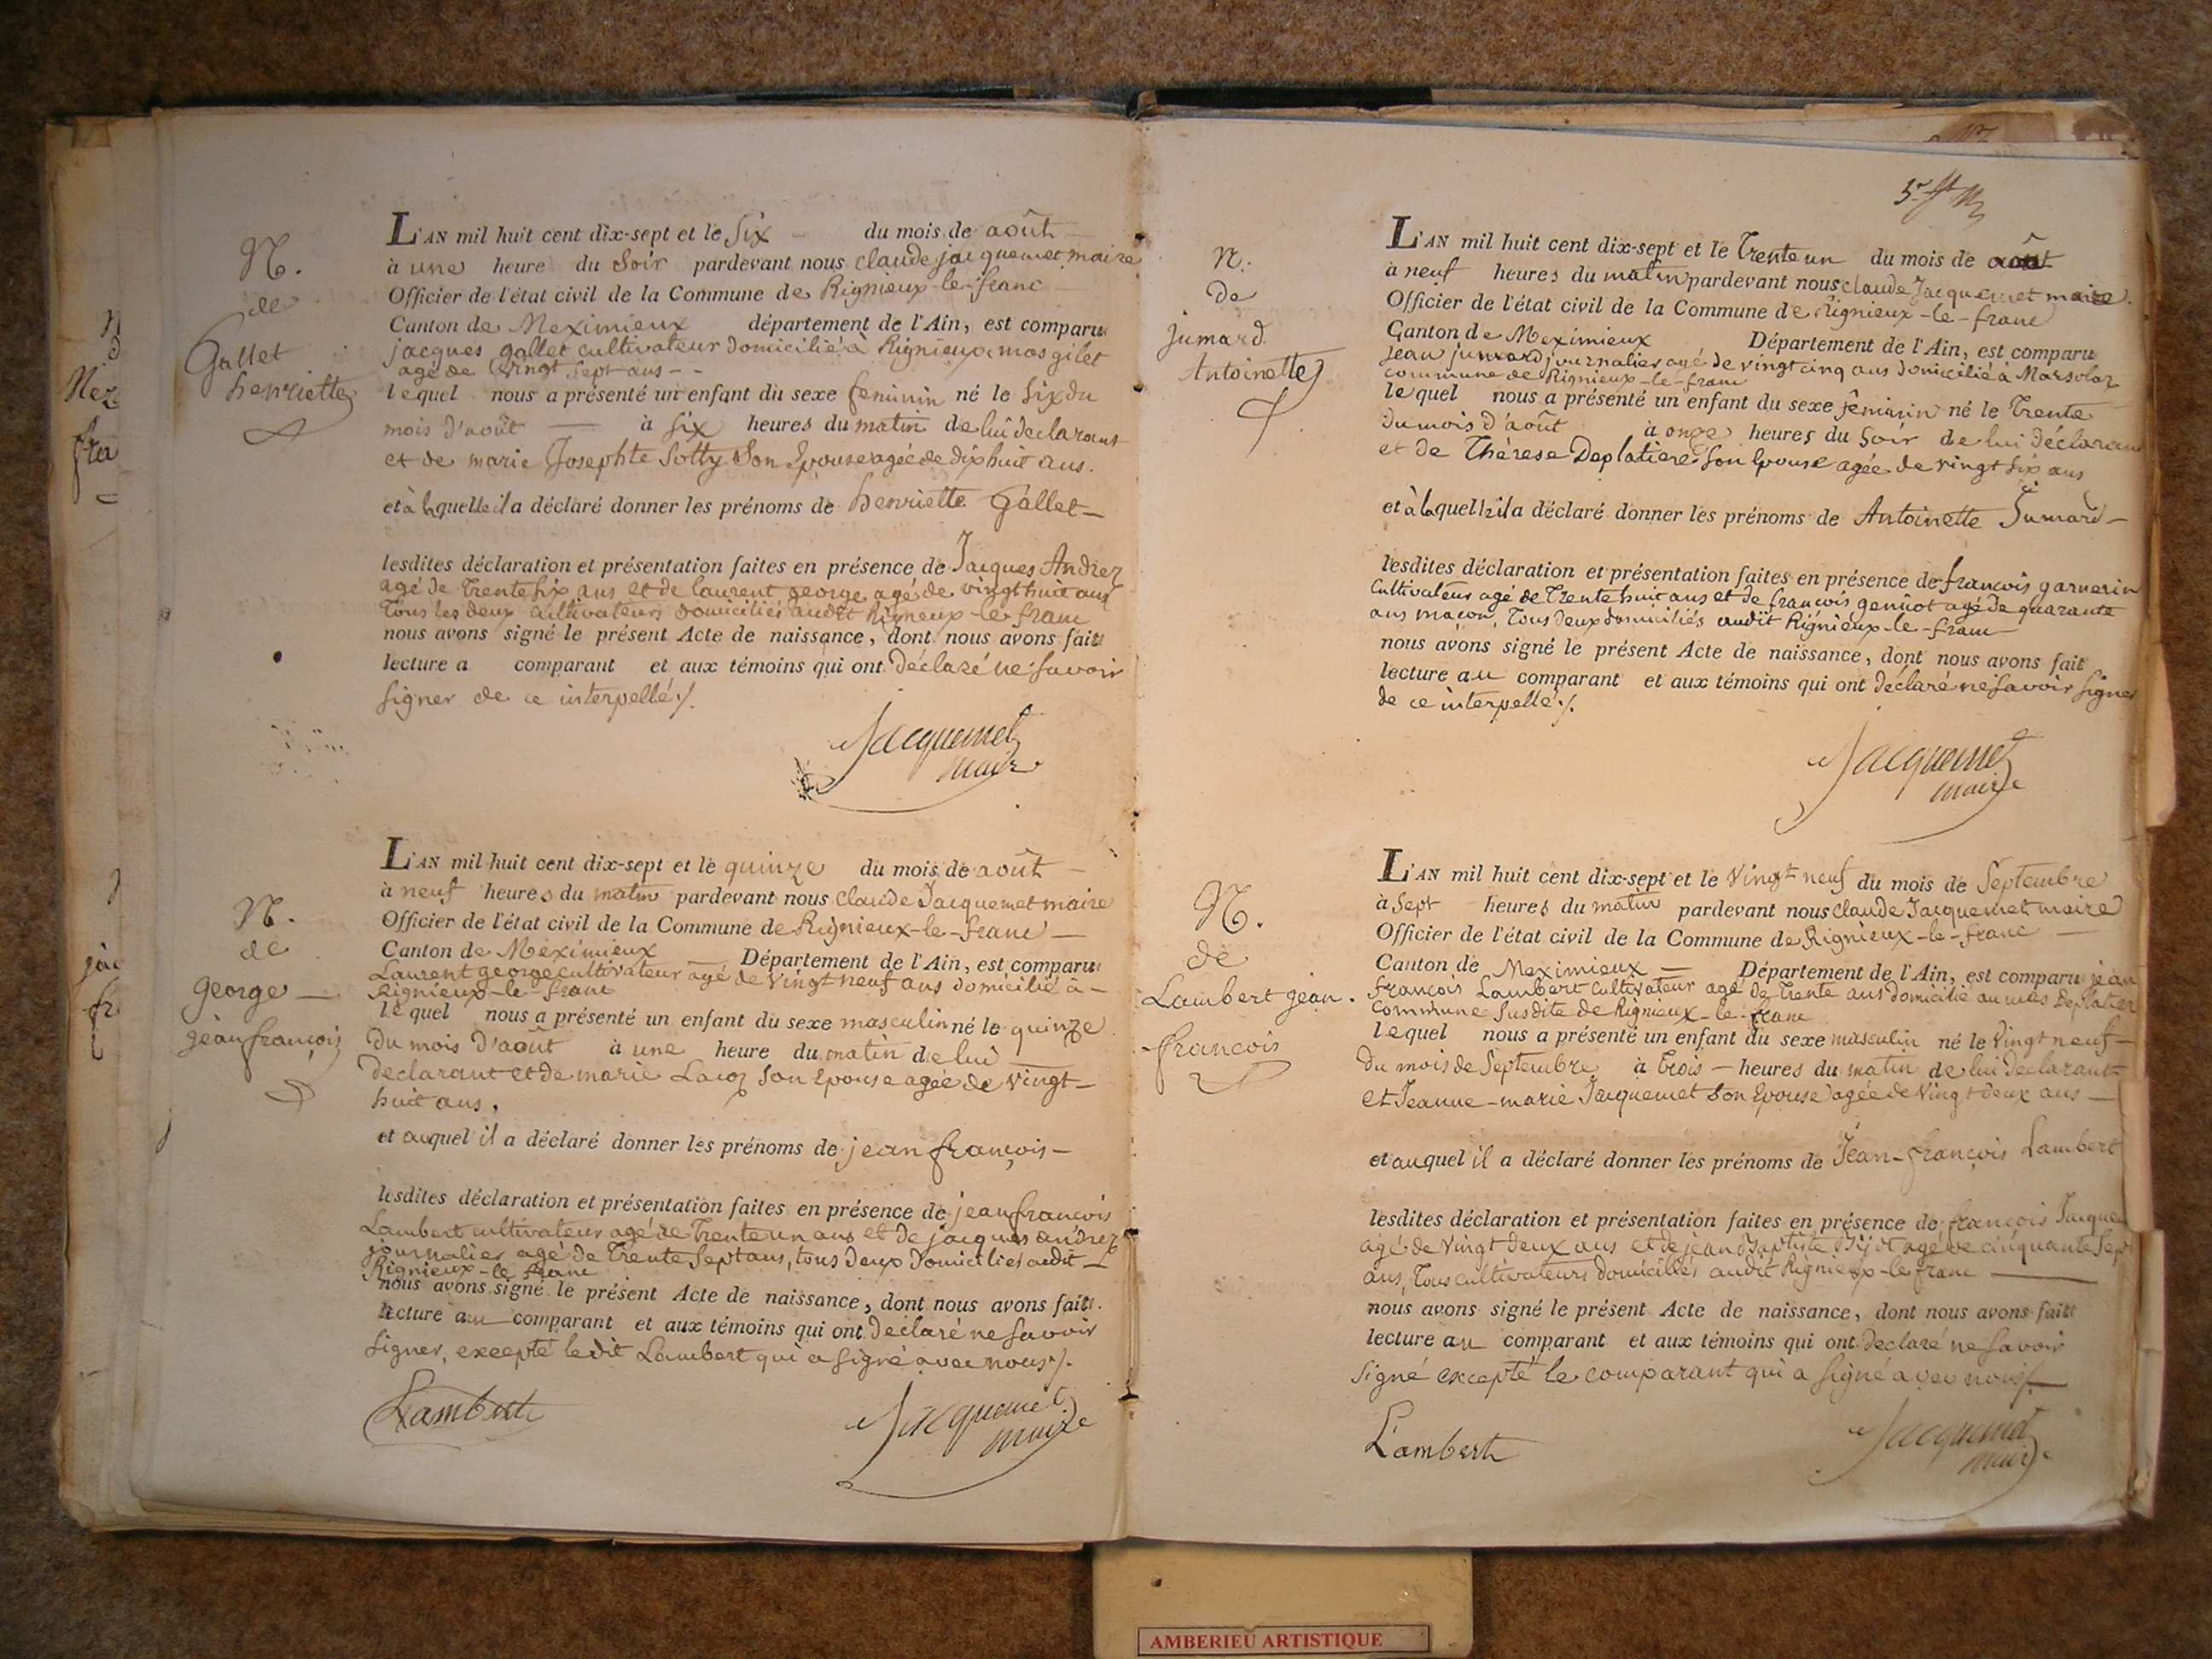 N.
de
Gallet
henriette
L'AN mil huit cent dix-sept et le Six du mois de août
à une heure du Soir pardevant nous claude jacquemet maire
Officier de l'état civil de la Commune de Rignieux-le-franc
Canton de Meximieux département de l'Ain, est comparu
jacques gallet cultivateur domicilié à Rignieux, mas gilet
agé de vingt sept ans
lequel nous a présenté un enfant du sexe feminin né le Six du
mois d'août à six heures du matin de lui declarant
et de marie Josephte Sotty Son Epouse agée de dix huit ans.
et à laquelle il a déclaré donner les prénoms de henriette Gallet
lesdites déclaration et présentation faites en présence de Jacques Andrez
agé de trente six ans et de laurent george agé de vingt huit ans
tous les deux cultivateurs domiciliés audit Rigneux-le-franc
nous avons signé le présent Acte de naissance, dont nous avons fait
lecture a comparant et aux témoins qui ont déclaré ne Savoir
Signer de ce interpellé ./.
Jacquemet
maire
N.
de
george
jean françois
L'AN mil huit cent dix-sept et le quinze du mois de août
à neuf heures du matin pardevant nous claude Jacquemet maire
Officier de l'état civil de la Commune de Rignieux-le-franc
Canton de Meximieux Département de l'Ain, est comparu
Laurent george cultivateur agé de vingt neuf ans domicilié à
Rignieux-le-franc
lequel nous a présenté un enfant du sexe masculin né le quinze
du mois d'août à une heure du matin de lui
declarant et de marie Lacoz Son Epouse agée de vingt
huit ans.
et auquel il a déclaré donner les prénoms de jean françois
lesdites déclaration et présentation faites en présence de jean francois
Lambert cultivateur agé de trente un ans et de jacques andrez
journalier agé de trente sept ans, tous deux domiciliés audit
Rignieux-le franc
nous avons signé le présent Acte de naissance, dont nous avons fait
lecture au comparant et aux témoins qui ont déclaré ne Savoir
Signer, excepté ledit Lambert qui a Signé avec nous ./.
Lambert
Jacquemet
maire
N.
de
jumard
Antoinette
L'AN mil huit cent dix-sept et le trente un du mois de août
à neuf heures du matin pardevant nous claude Jacquemet maire
Officier de l'état civil de la Commune de Rignieux-le-franc
Canton de Meximieux Département de l'Ain, est comparu
jean jumard journalier agé de vingt cinq ans domicilié à Marsolaz
commune de Rignieux-le-franc
lequel nous a présenté un enfant du sexe féminin né le trente
du mois d'août à onze heures du Soir de lui déclarant
et de Thérese Deplatiere Son Epouse agée de vingt six ans
et à laquelle il a déclaré donner les prénoms de Antoinette Jumard
lesdites déclaration et présentation faites en présence de francois garnerin
cultivateur agé de trente huit ans et de francois genivot agé de quarante
ans maçon, tous deux domiciliés audit Rignieux-le-franc
nous avons signé le présent Acte de naissance, dont nous avons fait
lecture au comparant et aux témoins qui ont déclaré ne Savoir Signer
de ce interpellé ./.
Jacquemet
maire
N.
de
Lambert jean.
francois
L'AN mil huit cent dix-sept et le Vingt neuf du mois de Septembre
à Sept heures du matin pardevant nous claude Jacquemet maire
Officier de l'état civil de la Commune de Rignieux-le-franc
Canton de Meximieux Département de l'Ain, est comparu jean
francois Lambert cultivateur agé de trente ans domicilié au mas Deplatier
commune Susdite de Rignieux-le-franc
lequel nous a présenté un enfant du sexe masculin né le Vingt neuf
du mois de Septembre à trois heures du matin de lui declarant
et Jeanne-marie Jacquemet Son Epouse agée de Vingt deux ans
et auquel il a déclaré donner les prénoms de Jean-françois Lambert
lesdites déclaration et présentation faites en présence de françois Jacquem
agé de vingt deux ans et de jean Baptiste agé de cinquante sept
ans, tous cultivateurs domiciliés audit Rignieux-le franc
nous avons signé le présent Acte de naissance, dont nous avons fait
lecture au comparant et aux témoins qui ont declaré ne Savoir
Signé excepté le comparant qui a Signé avec nous ./.
Lambert
Jacquemet
maire
AMBERIEU ARTISTIQUE